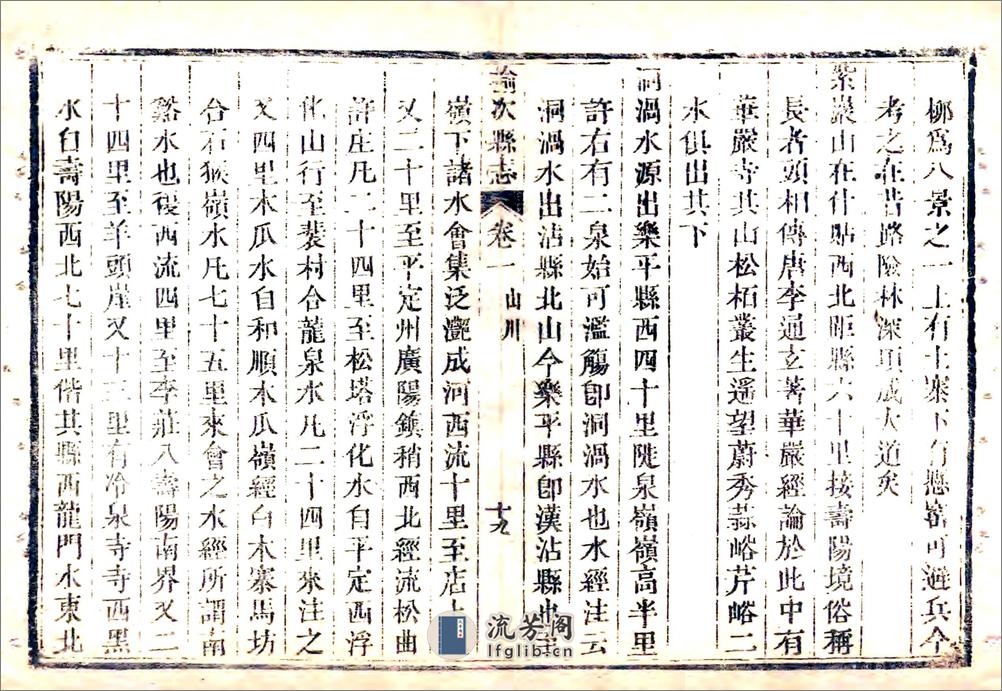 栁爲八景之一上有土寨下有懸窑可避兵今
考之在昔路險林深項成大道矣
紫巖山在什貼西北距縣六十里接壽陽境俗稱
長者頭相傳唐李通玄著華嚴經論於此中有
華嚴寺其山松柏叢生遥望蔚秀蒜峪芹峪二
水俱出其下
洞渦水源出樂平縣西四十里陡泉嶺嶺高半里
許右有二泉始可濫觴卽洞渦水也水經注云
洞渦水出沾縣北山今樂平縣卽漢沾縣也
榆次縣志 卷一 山川 十九
嶺下諸水會集泛灔成河西流十里至店上
又二十里至平定州廣陽鎮稍西北經流松曲
許庄凡二十四里至松塔浮化水自平定西浮
化山行至裴村合龍泉水凡二十四里來注之
又四里木瓜水自和順木瓜嶺經白木寨馬坊
合石猴嶺水凡七十五里來會之水經所謂南
谿水也復西流四里至李莊入壽陽南界又二
十四里至羊頭崖又十三里有冷泉寺寺西黑
水自壽陽西北七十里偕其縣西龍門水東北
流芳阁
lfglib.cn